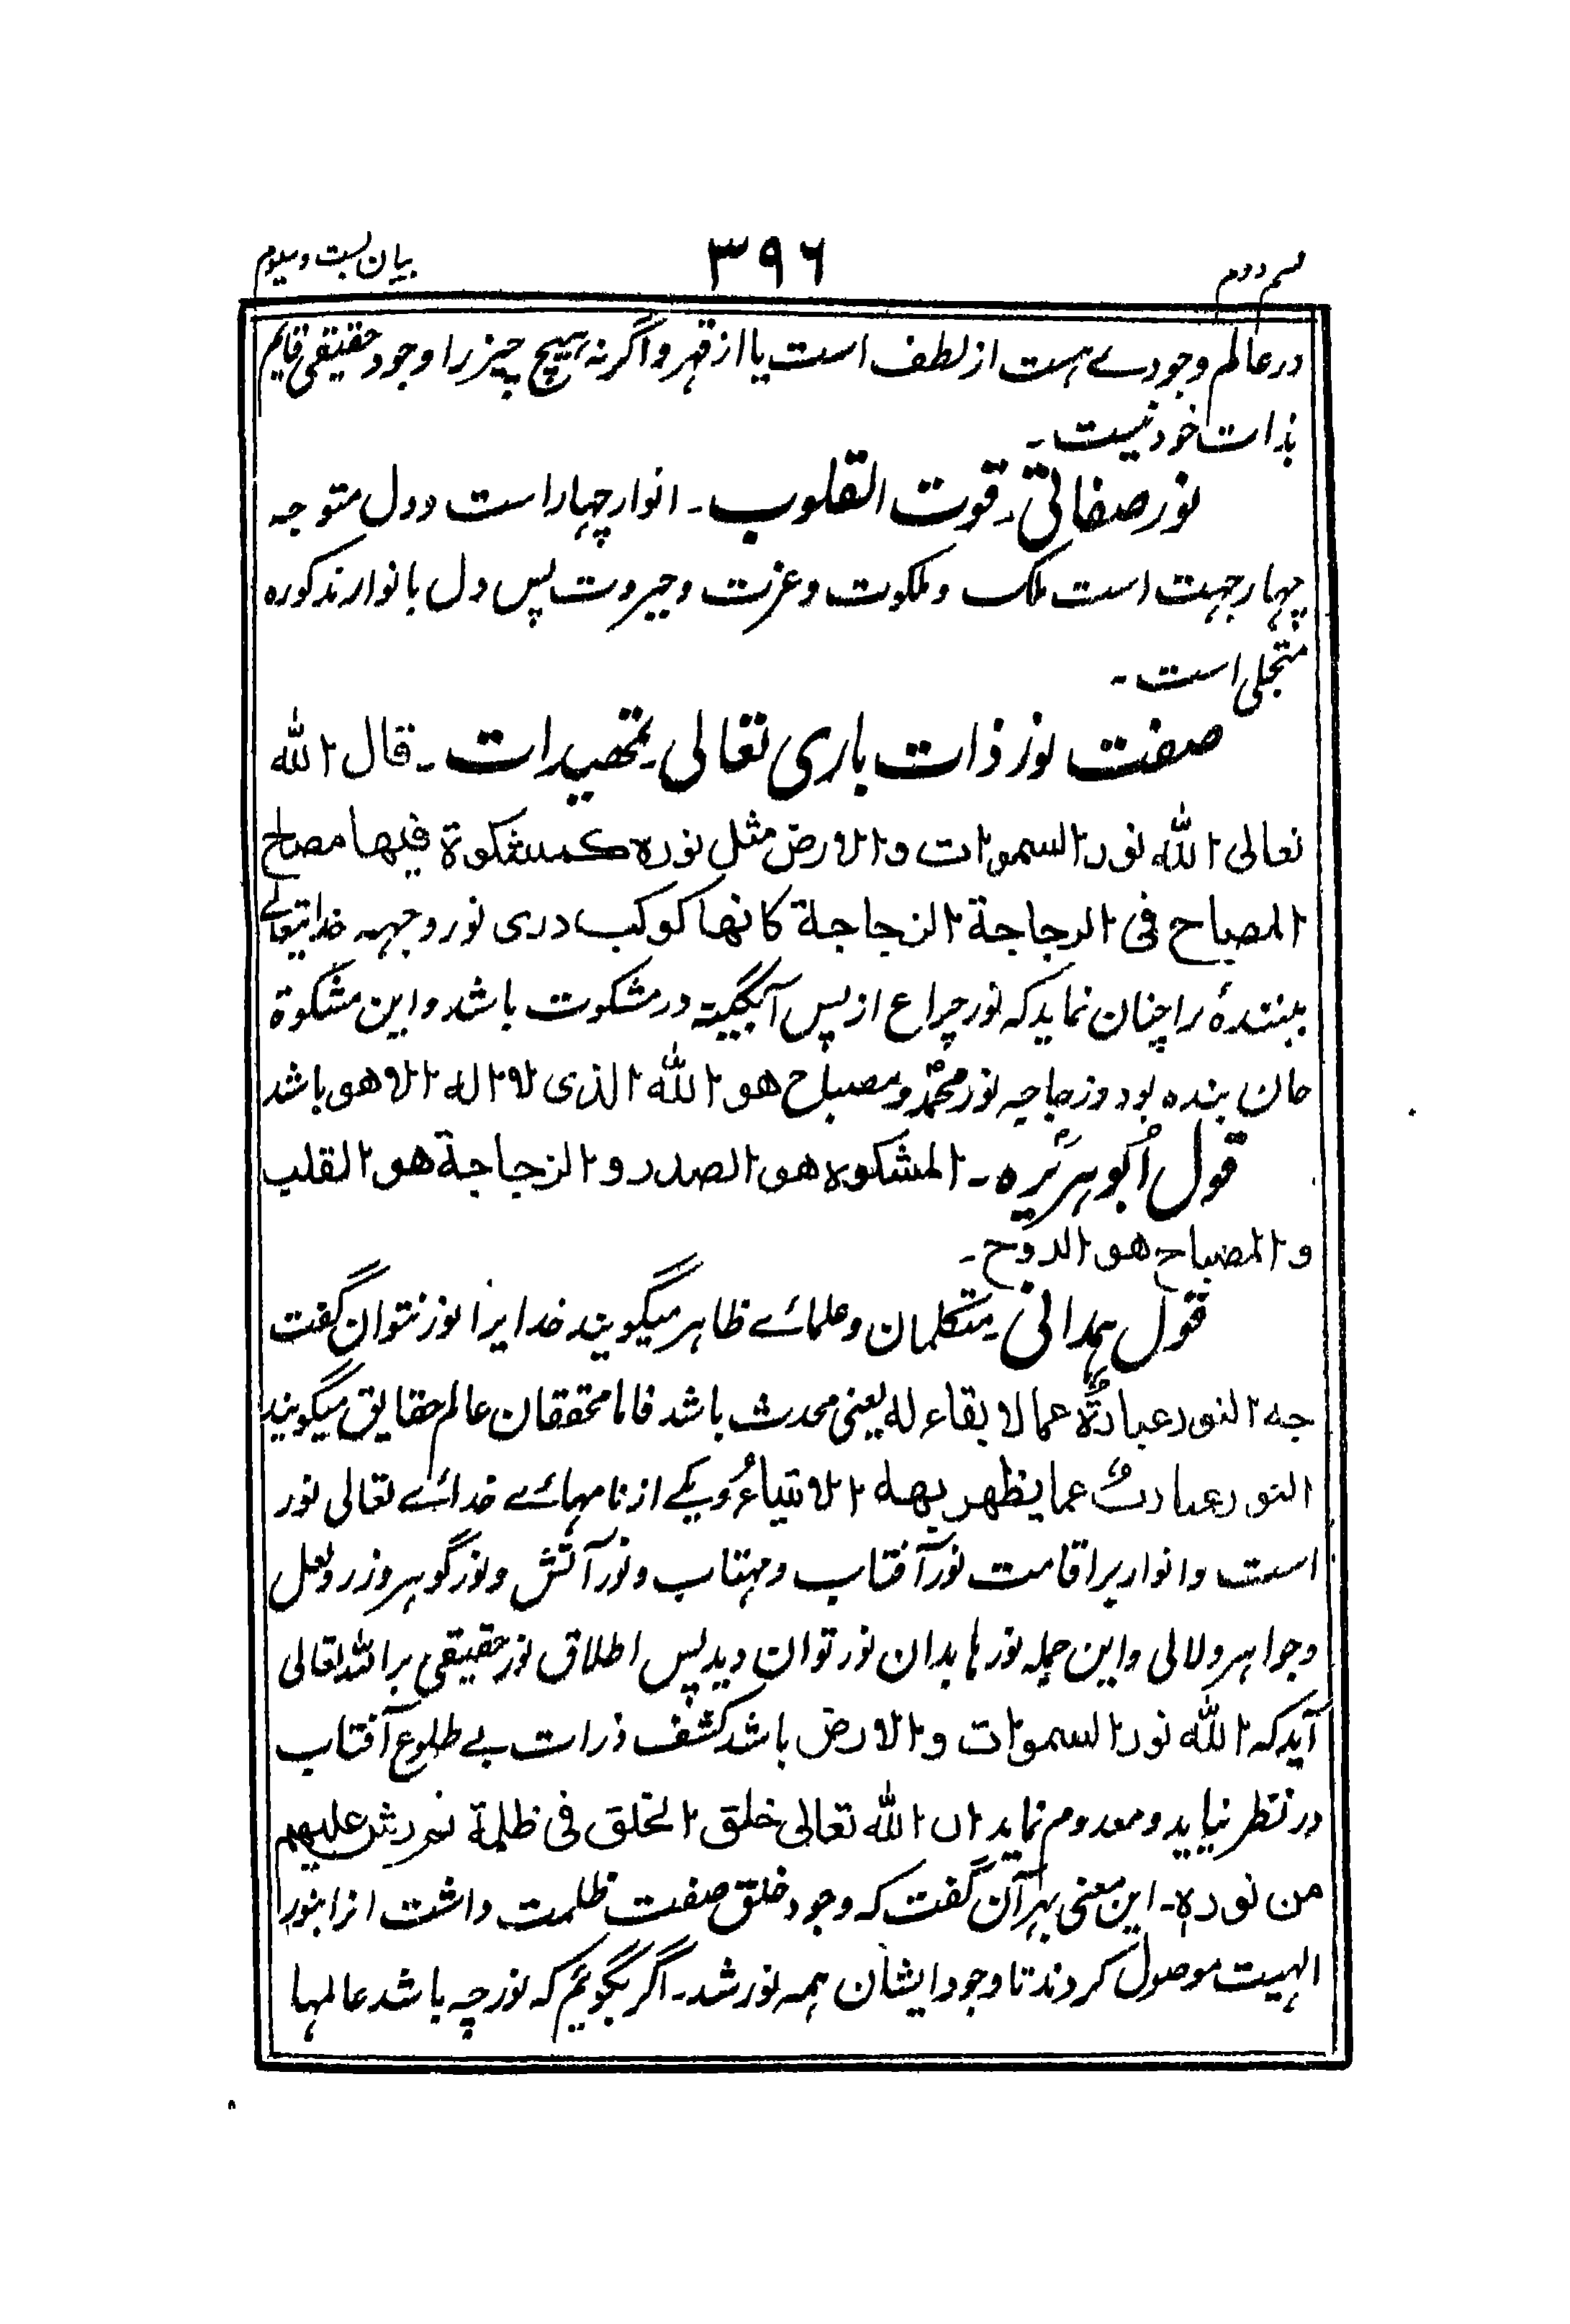 قسم دوم ۳۹۶ بیان بست و سیوم
در عالم وجودے ہست از لطف است یا از قہر و اگر نہ ہیچ چیز را وجود حقیقی قایم
بذات خود نیست۔
نور صفاتی۔ قوت القلوب۔ انوار چہار است و دل متوجہ
چہار جہت است ملک و ملکوت و عزت و جبروت پس دل بانوار مذکورہ
متجلی است۔
صفت نور ذات باری تعالی۔ تمهیدات۔ قال الله
تعالی الله نور السموات والارض مثل نوره کمشکوة فیها مصباح
المصباح فی الزجاجة الزجاجة کانها کوکب دری نور وجہہ خدایتعالے
بینندۂ را چنان نماید کہ نور چراغ از پس آبگینہ در مشکوت باشد و این مشکوة
جان بندہ بود و زجاجہ نور محمدؐ و مصباح هو الله الذی لا اله الا هو باشد
قول أبو ہریرہ۔ المشکوه هو الصدر و الزجاجة هو القلب
و المصباح هو الروح۔
قول ہمدانی۔ متکلمان و علمائے ظاہر میگویند خدایرا نور نتوان گفت
چہ النور عبارةٌ عما لا بقاء له یعنی محدث باشد فاما محققان عالم حقایق میگویند
النور عبارتٌ عما یظهر بهه الاشیاءُ و یکے از نامہائے خدائے تعالی نور
است و انوار بر اقامت نور آفتاب و مہتاب و نور آتش و نور گوہر و زر و لعل
و جواہر و لالی و این جملہ نور ہا بدان نور توان دید پس اطلاق نور حقیقی بر اللہ تعالی
آید کہ الله نور السموات و الارض باشد کشف ذرات بے طلوع آفتاب
در نظر نیاید و معدوم نماید ان الله تعالی خلق الخلق فی ظلمة ثم رش علیهم
من نوره۔ این معنی بہر آن گفت کہ وجود خلق صفت ظلمت داشت انرا بنور
الہیت موصول کردند تا وجود ایشان ہمہ نور شد۔ اگر بگوئیم کہ نور چہ باشد عالمہا